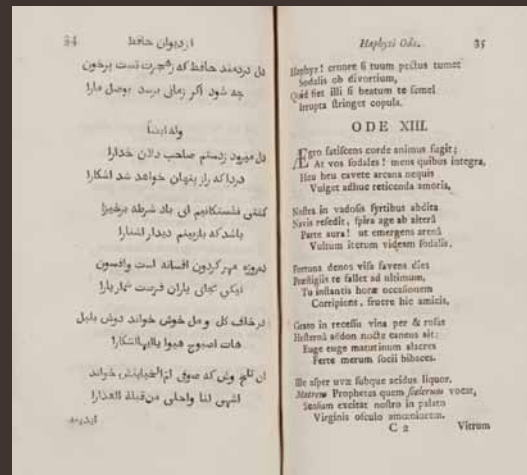 34 از دیوان حافظ
دل دردمند حافظ که زهجرت تست پرخون
چه شود اگر زمانی برسد بوصل مارا
وله ایضا
دل میرود زدستم صاحب دلان خدارا
دردا که راز پنهان خواهد شد اشکارا
کشتی شکستگانیم ای باد شرطه برخیز
باشد که بازبینم دیدار اشنارا
ده روزه مهر کردون افسانه است وافسون
نیکی بجای یاران فرصت شمار یارا
در کل و مل خوش خواند دوش بلبل
هات الصبوح هبوا یا ایها
ان تلخ وش که صوفی ام الخبایثش خواند
اشهی لنا واحلی من قبلة العذارا
Haphyzi Odæ. 35
Haphyz! cruore si tuum pectus tumet
Sodalis ob divortium,
Quid fiet illi si beatum te semel
Irrupta stringet copula.
ODE XIII.
Ægro fatiscens corde animus fugit;
At vos sodales! mens quibus integra,
Heu heu cavete arcana nequis
Vulget adhuc reticenda amoris,
Nostra in vadosis syrtibus abdita
Navis resedit, spira age ab alterâ
Parte aura! ut emergens arenâ
Vultum iterum videam sodalis.
Fortuna denos visa favens dies
Præstigiis te fallet ad ultimum,
Tu instantis horæ occasionem
Corripiens, fruere hic amicis,
Gesto in recessu vina per & rosas
Hesternâ aëdon nocte canens ait:
Euge euge matutinum alacres
Ferte merum socii bibaces.
Ille asper uvæ subque acidus liquor,
Matrem Prophetes quem scelerum vocat,
Sensum excitat nostro in palato
Virginis osculo amœniorem.
C 2 Vitrum